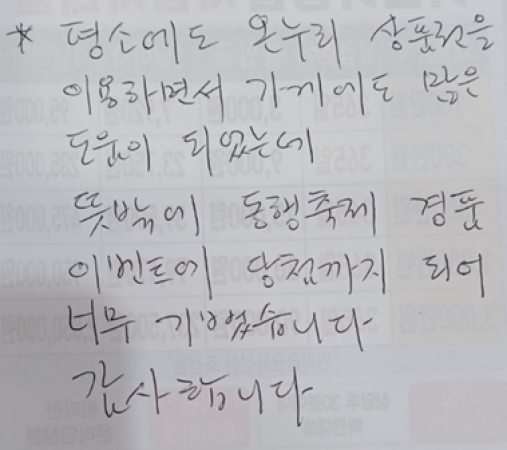 * 평소에도 온누리 상품권을
이용하면서 가계에도 많은
도움이 되었는데
뜻밖에 동행축제 경품
이벤트에 당첨까지 되어
너무 기뻤습니다
감사합니다